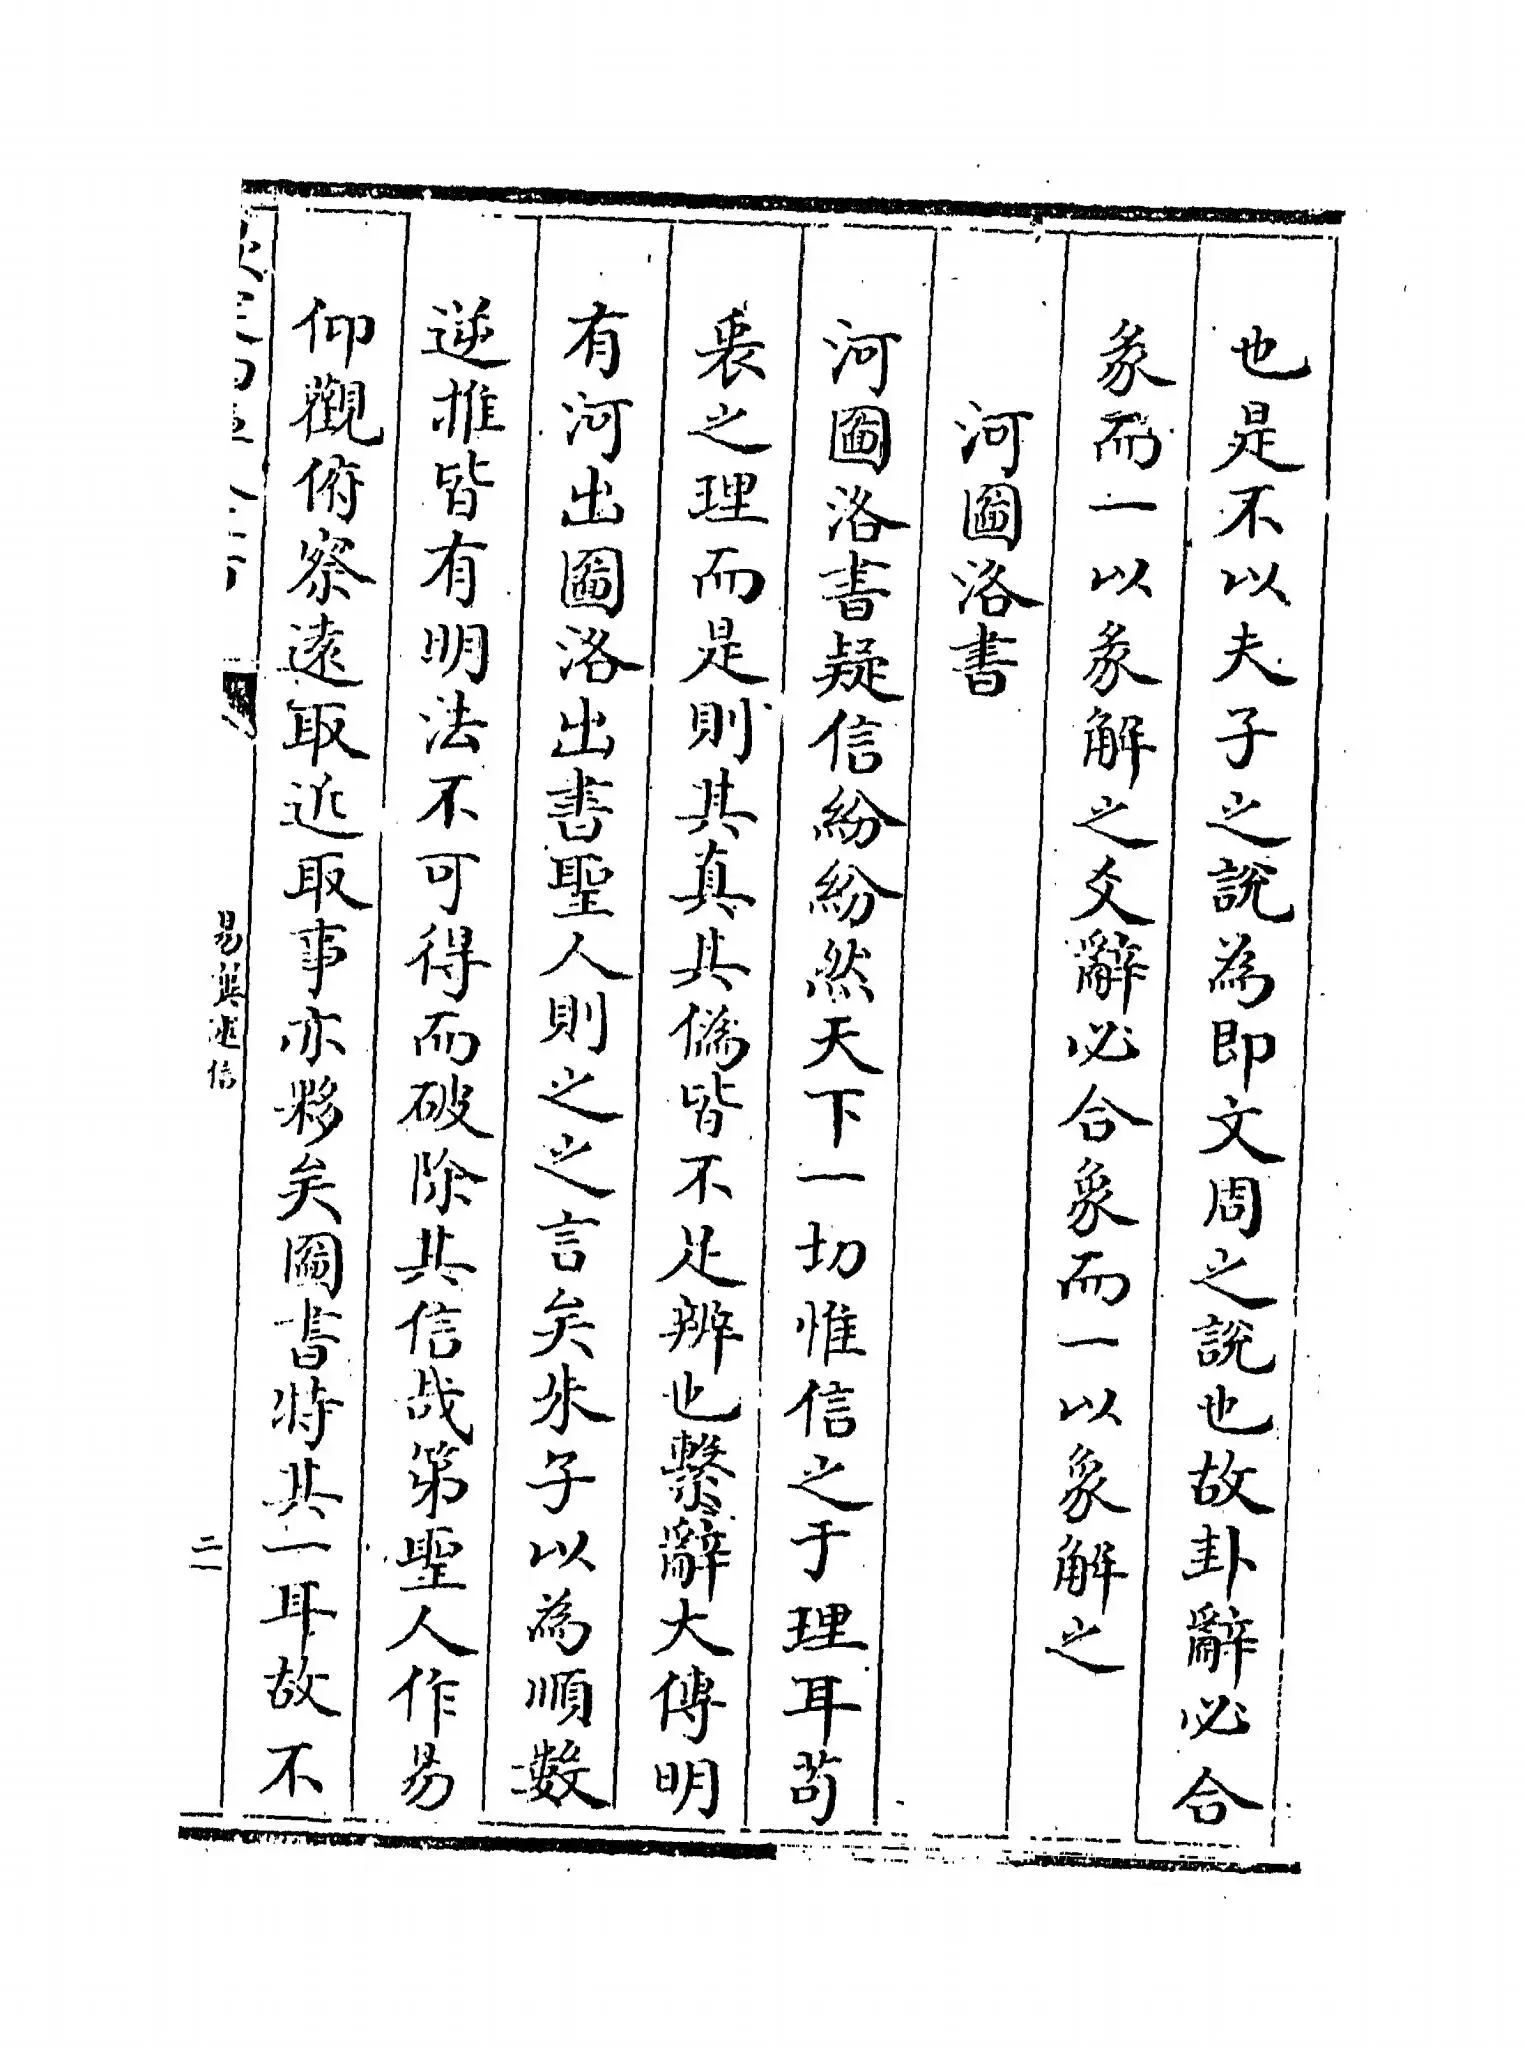 也是不以夫子之說為即文周之說也故卦辭必合
彖而一以彖解之爻辭必合象而一以象解之
河圖洛書
河圖洛書疑信紛紛然天下一切惟信之于理耳苟
衷之理而是則其真其偽皆不足辨也繫辭大傳明
有河出圖洛出書聖人則之之言矣朱子以為順數
逆推皆有明法不可得而破除其信哉第聖人作易
仰觀俯察遠取近取事亦夥矣圖書特其一耳故不
易翼述信
二